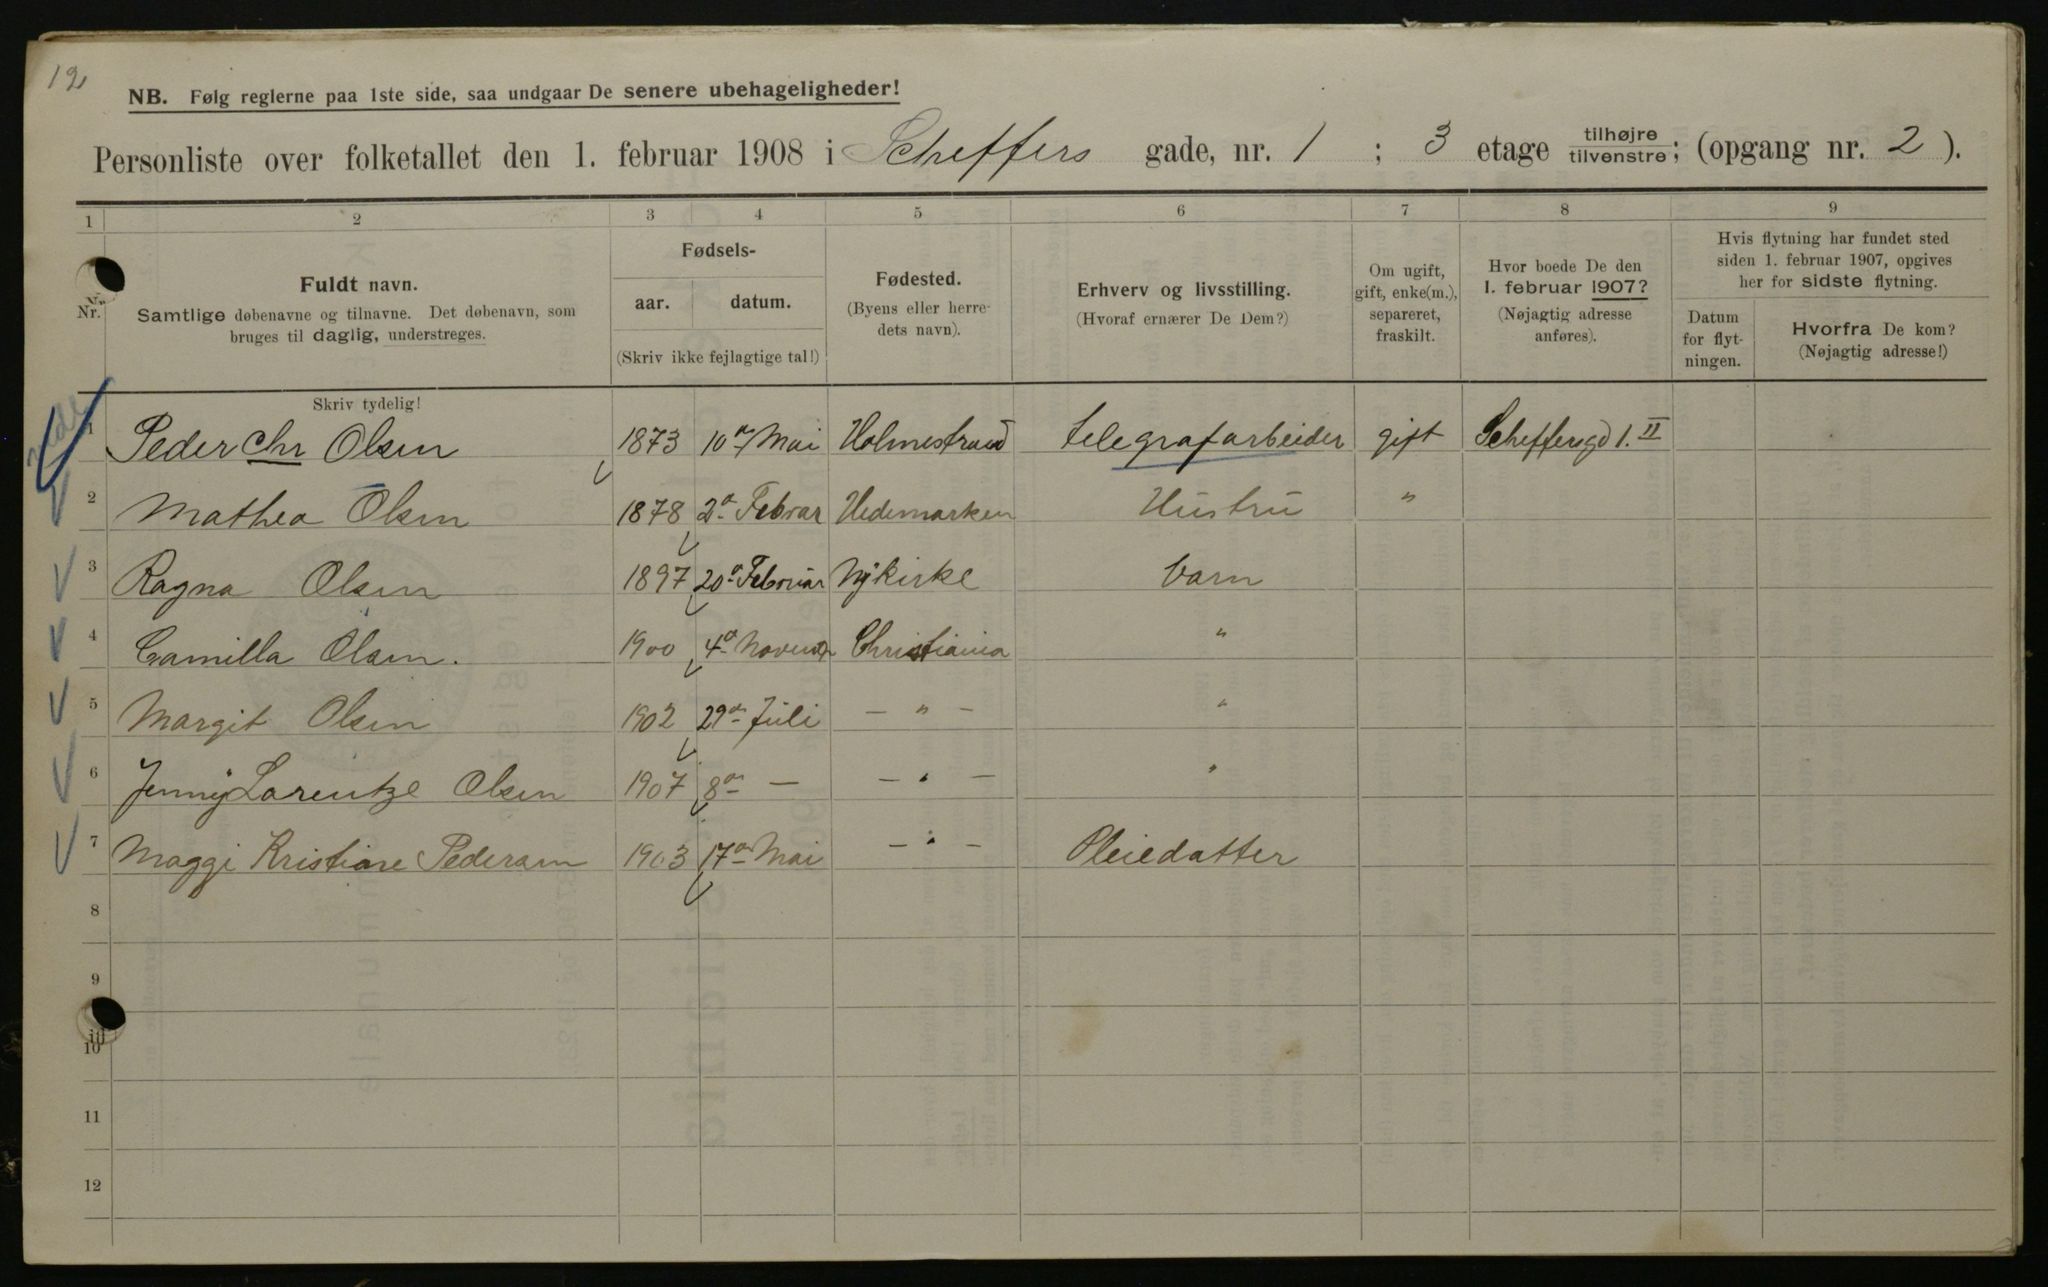 12
NB. Følg reglerne paa 1ste side, saa undgaar De senere ubehageligheder!
Personliste over folketallet den 1. februar 1908 i Scheffers gade, nr. 1 ; 3 etage tilhøjre tilvenstre; (opgang nr. 2 ).
1 2 3 4 5 6 7 8 9
Nr.
Fuldt navn.
Samtlige døbenavne og tilnavne. Det døbenavn, som
bruges til daglig, understreges.
Skriv tydelig!
Fødsels-
aar. datum.
(Skriv ikke fejlagtige tal!)
Fødested.
(Byens eller herre-
dets navn).
Erhverv og livsstilling.
(Hvoraf ernærer De Dem?)
Om ugift,
gift, enke(m.),
separeret,
fraskilt.
Hvor boede De den
1. februar 1907?
(Nøjagtig adresse
anføres).
Hvis flytning har fundet sted
siden 1. februar 1907, opgives
her for sidste flytning.
Datum
for flyt-
ningen.
Hvorfra De kom?
(Nøjagtig adresse!)
1 Peder Chr Olsen 1873 10de Mai Holmestrand telegrafarbeider gift Scheffersgd 1. II
2 Mathea Olsen 1878 2de Febrar Hedemarken Hustru "
3 Ragna Olsen 1897 20de Februar Nykirke Barn
4 Camilla Olsen. 1900 4de Novemb Christiania "
5 Margit Olsen 1902 29de Juli — " — "
6 Jenny Lorentze Olsen 1907 8de — — " — "
7 Maggi Kristiane Pedersen 1903 17de Mai — " — Pleiedatter
8
9
10
11
12